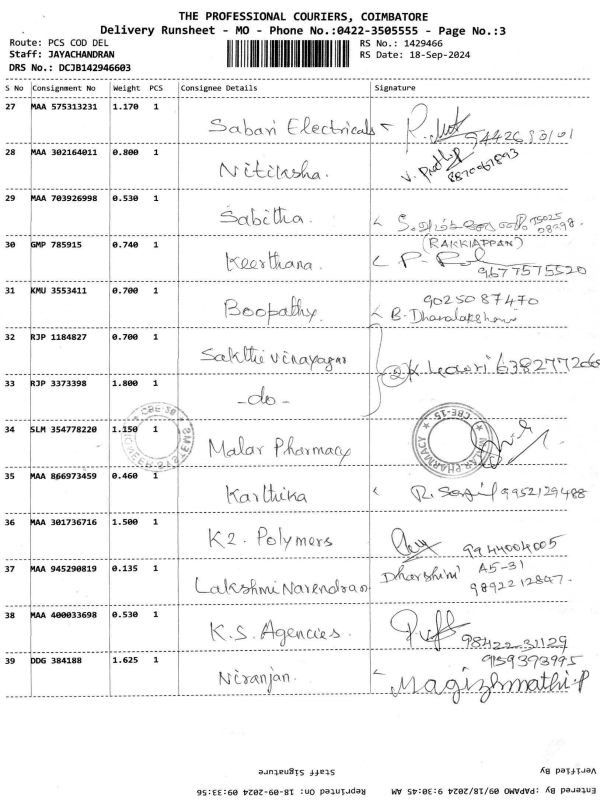 THE PROFESSIONAL COURIERS, COIMBATORE
Delivery Runsheet - MO - Phone No.:0422-3505555 - Page No.:3
Route: PCS COD DEL
Staff: JAYACHANDRAN
DRS No.: DCJB142946603
RS No.: 1429466
RS Date: 18-Sep-2024
S No Consignment No Weight PCS Consignee Details Signature
27 MAA 575313231 1.170 1 Sabari Electricals
28 MAA 302164011 0.800 1 Nitiksha. 8870067893
29 MAA 703926998 0.530 1 Sabitha.
30 GMP 785915 0.740 1 Keerthana. (RAKKIAPPAN) 9677575520
31 KMU 3553411 0.700 1 Boopathy. 9025087470
B. Dhanalakshmi
32 RJP 1184827 0.700 1 Sakthi Vinayagar
33 RJP 3373398 1.800 1 -do-
34 SLM 354778220 1.150 1 Malar Pharmacy CBE-15
35 MAA 866973459 0.460 1 Karthika 9952129488
36 MAA 301736716 1.500 1 K2. Polymers 9944004005
37 MAA 945290819 0.135 1 Lakshmi Narendran Dharshini A5-31
9892212897.
38 MAA 400033698 0.530 1 K.S. Agencies. 98422-31129
39 DDG 384188 1.625 1 Niranjan. 9159393995
Magizhmathi.P
Staff Signature
Verified By
Entered By :PAPAMO 09/18/2024 9:30:45 AM
Reprinted On: 18-09-2024 09:33:56